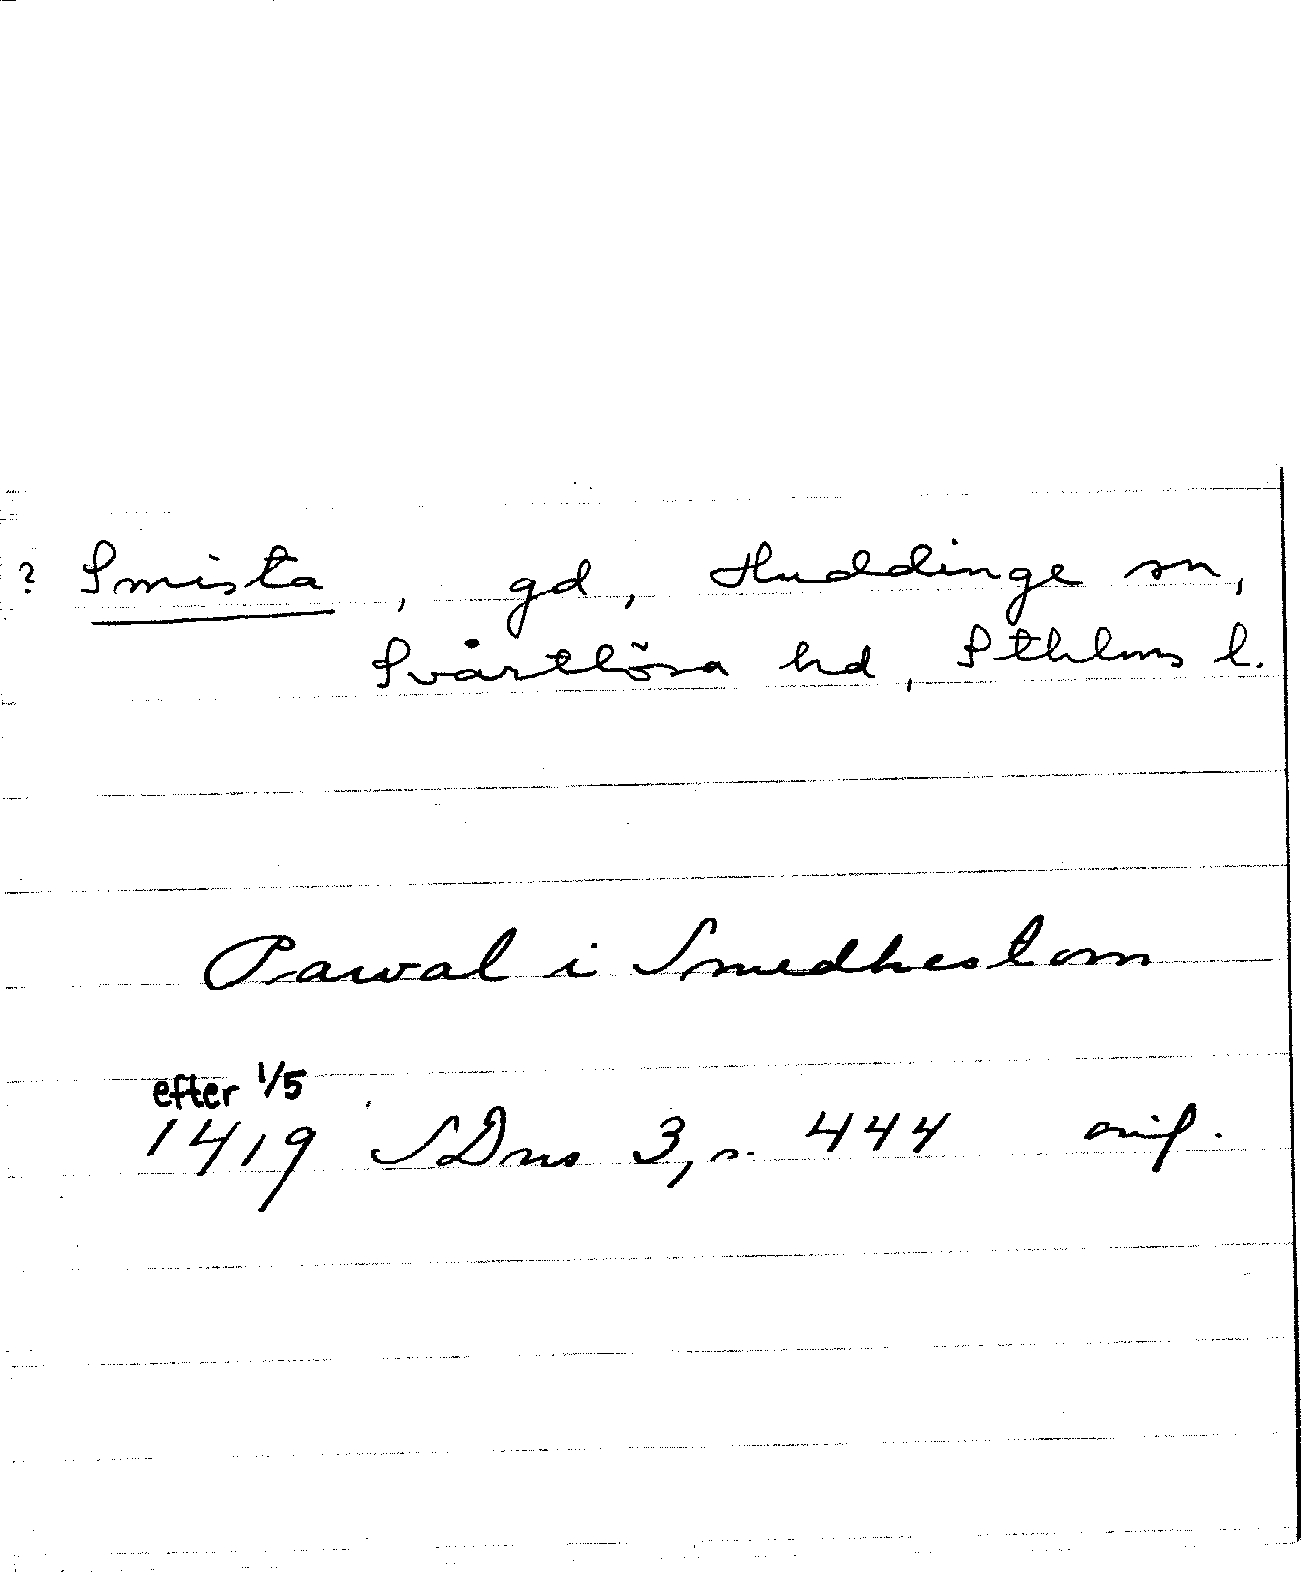 ? Smista, gd, Huddinge sn,
Svartlösa hd, Sthlms l.
Pawal i Smedhestom
efter 1/5
1419 SDns 3, s. 444 avs.